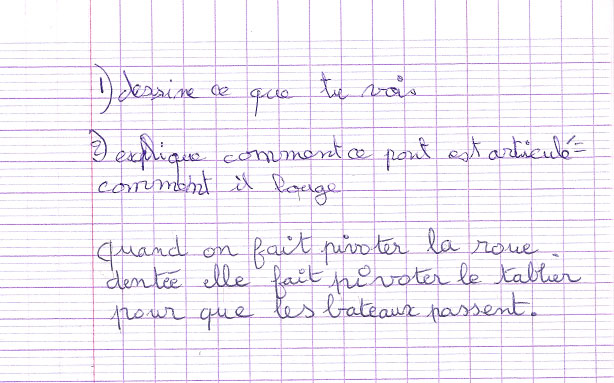 1) dessine ce que tu vois
2) explique comment ce pont est articulé =
comment il bouge
Quand on fait pivoter la roue
dentée elle fait pivoter le tablier
pour que les bateaux passent.